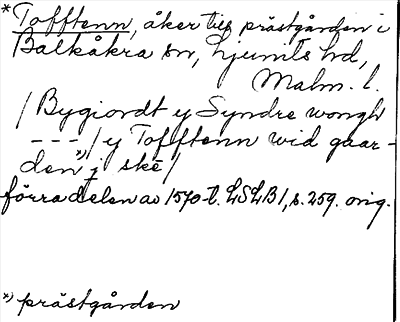 * Tofftenn, åker till prästgården i
Balkåkra sn, Ljunits hd,
Malm. l.
/ Bygiordt y Syndre wongh
- - - / y Tofftenn wid gaar-
den *) j ske /
förra delen av 1570-t. LSLB 1, s. 259. orig.
*) prästgården